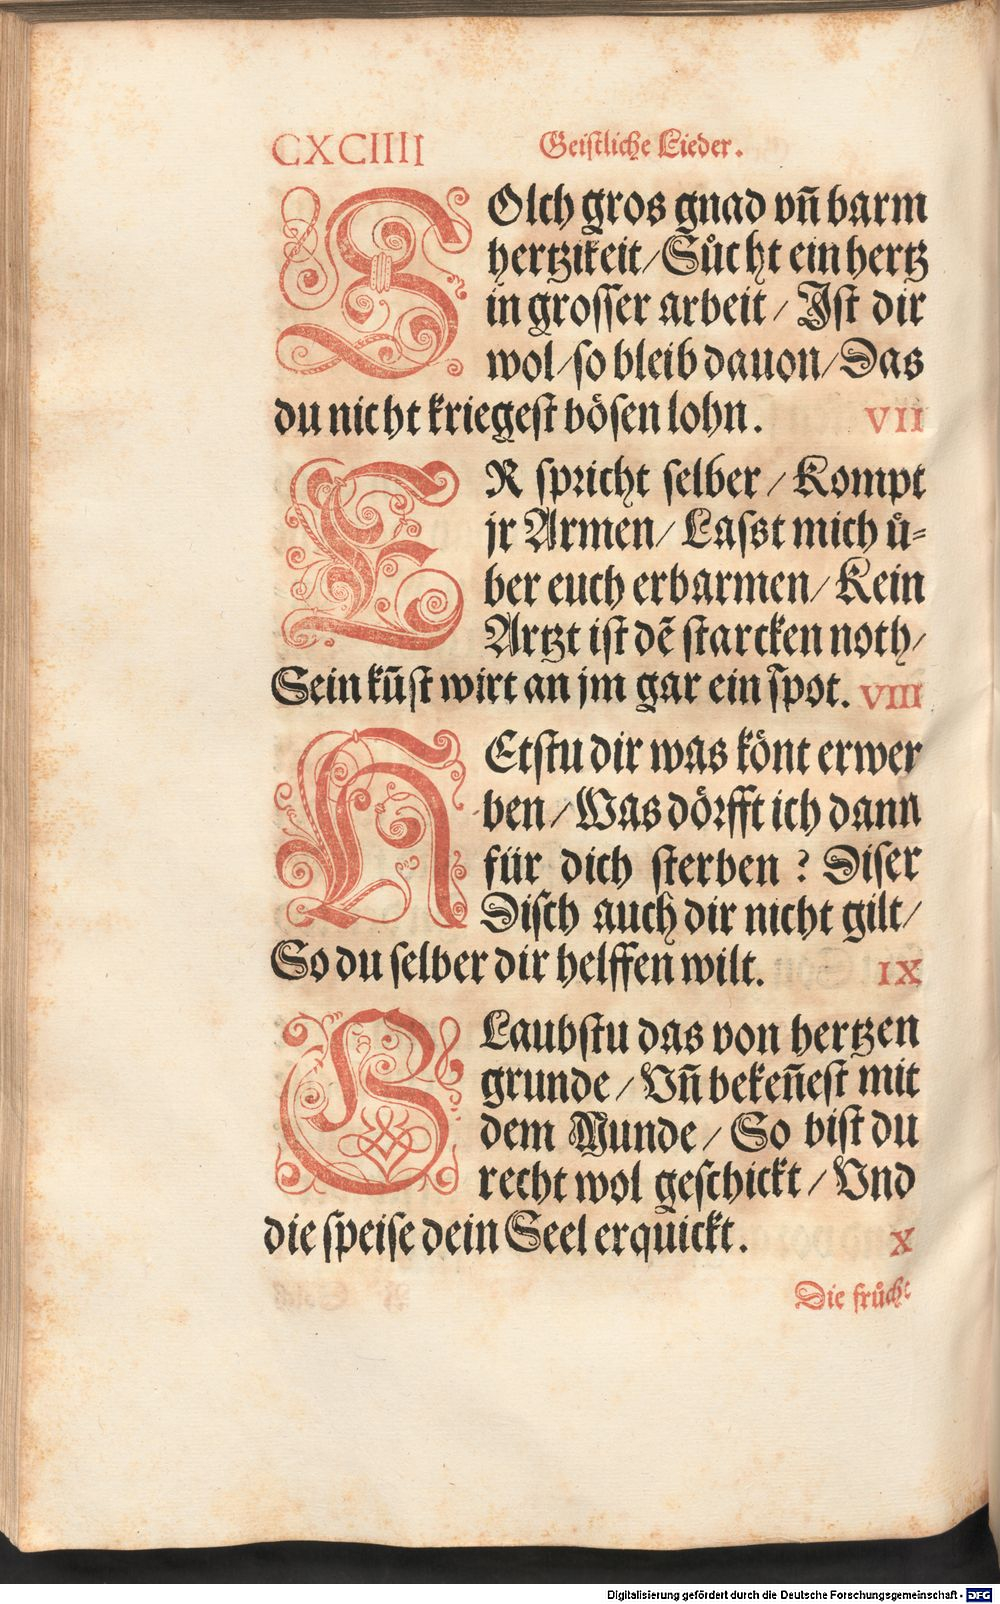 CXCIIII Geistliche Lieder.
SOlch gros gnad vñ barm
hertzikeit/Sůcht ein hertz
in grosser arbeit/ Jst dir
wol/so bleib dauon/Das
du nicht kriegest bösen lohn. VII
ER spricht selber/ Kompt
jr Armen/ Lasst mich ů-
ber euch erbarmen/ Kein
Artzt ist dē starcken noth/
Sein kūst wirt an jm gar ein spot. VIII
HEtstu dir was könt erwer
ben/Was dörfft ich dann
für dich sterben? Diser
Disch auch dir nicht gilt/
So du selber dir helffen wilt. IX
GLaubstu das von hertzen
grunde/Vñ bekeñest mit
dem Munde/ So bist du
recht wol geschickt/Vnd
die speise dein Seel erquickt. X
Die frůcht
Digitalisierung gefördert durch die Deutsche Forschungsgemeinschaft - DFG